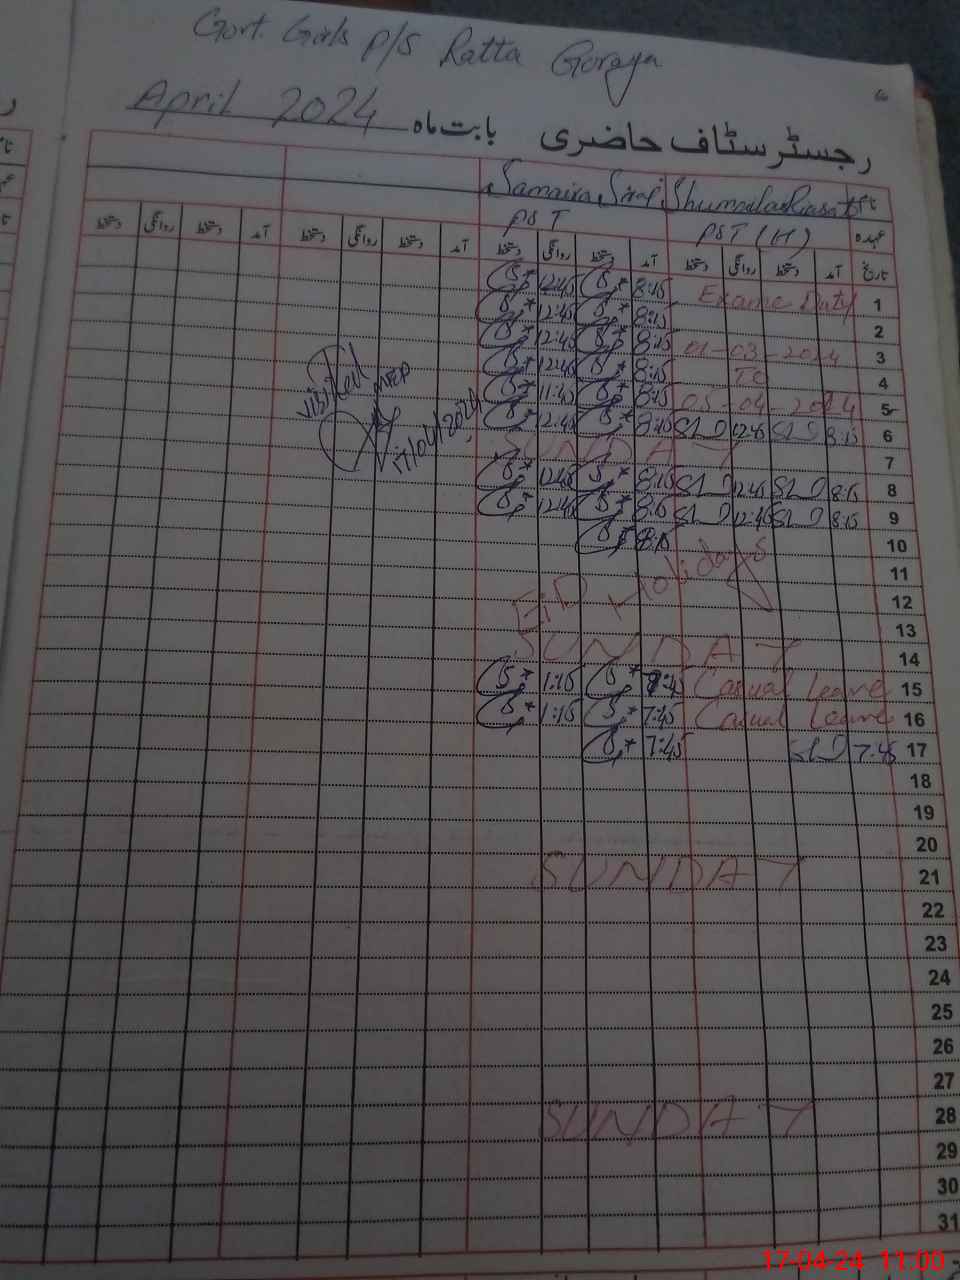 Govt. Girls P/S Ratta Goraya
6
April 2024 رجسٹر سٹاف حاضری بابت ماہ
نام Shumaila Riasat Samaira Siraj
عہدہ PST (H) PST
تاریخ آمد دستخط روانگی دستخط آمد دستخط روانگی دستخط آمد دستخط روانگی دستخط آمد دستخط روانگی دستخط
12:45 8:15 Exame Duty 1
12:45 8:15 2
12:45 8:15 01-03-2024 3
12:45 8:15 TO 4
11:45 8:15 05-04-2024 5
12:45 8:15 12:45 8:15 6
SUNDAY 7
12:45 8:15 12:45 8:15 8
12:45 8:15 12:45 8:15 9
8:15 10
11
EiD Holidays 12
13
SUNDAY 14
1:15 7:45 Casual leave 15
1:15 7:45 Casual leave 16
7:45 7:45 17
visited
MEA
17/04/2024
18
19
20
SUNDAY 21
22
23
24
25
26
27
SUNDAY 28
29
30
31
17-04-24 11:00